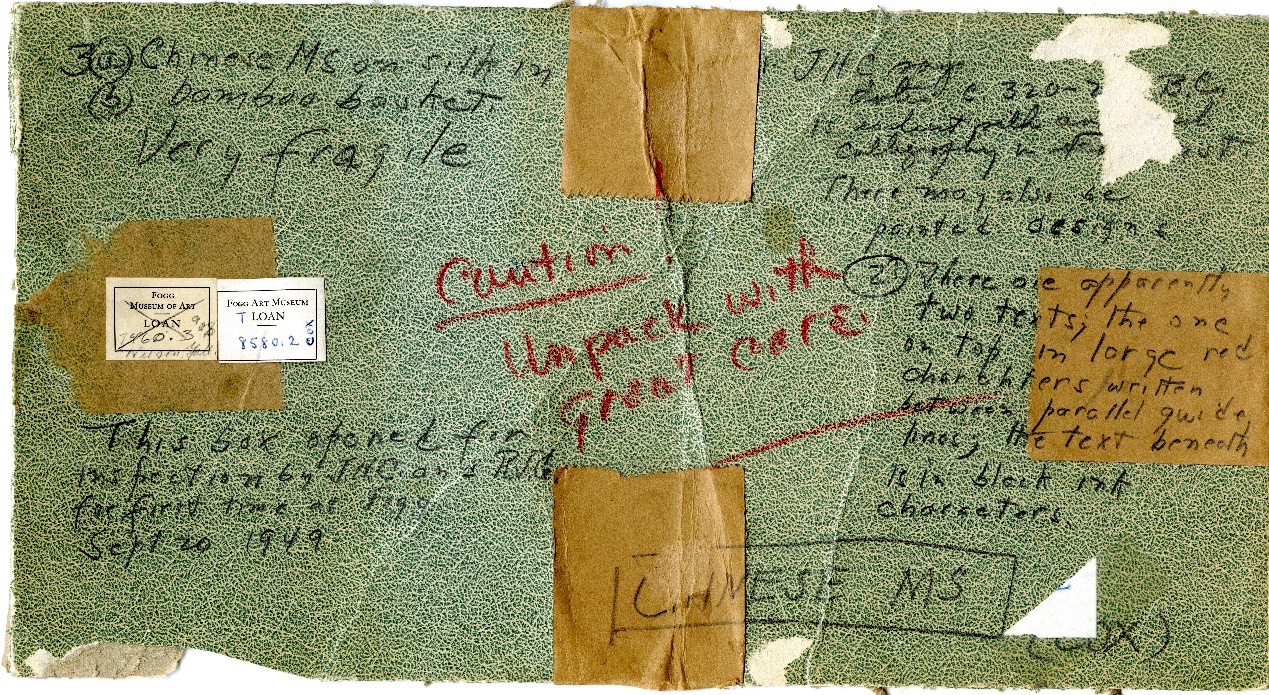 3(a) Chinese MS on silk in
(b) bamboo basket
Very fragile
Caution.
Unpack with
great care.
FOGG
MUSEUM OF ART
LOAN
1960.3
FOGG ART MUSEUM
T LOAN
8580.2 COX
This box opened for
inspection by JHC and
for first time at Fogg
Sept 20 1949
JHC may
date c 320-
B.C.
calligraphy in
There may also be
painted designs
(2) There are apparently
two texts; the one
on top in large red
characters written
between parallel guide
lines, the text beneath
is in black ink
characters.
CHINESE MS
(COX)